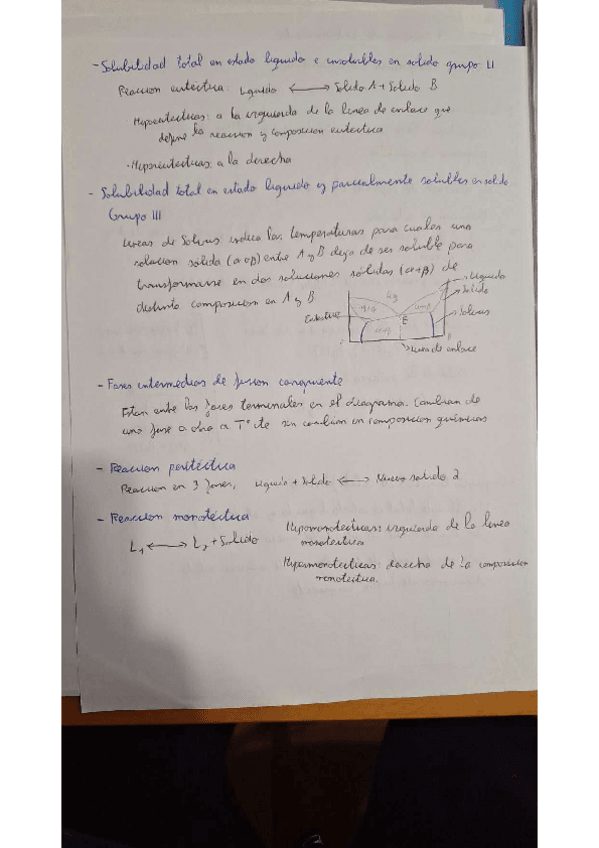 - Solubilidad total en estado liquido e insolubles en solido grupo II
Reaccion eutectica: Liquido ⟷ Solido A + Solido B
Hipoeutecticas: a la izquierda de la linea de enlace que
define la reaccion y composicion eutectica
· Hipereutecticas: a la derecha
- Solubilidad total en estado liquido y parcialmente solubles en solido
Grupo III
Lineas de Solvus indica las temperaturas para cuales una
solucion sólida (α o β) entre A y B deja de ser soluble para
transformarse en dos soluciones sólidas (α+β) de
distinta composicion en A y B
Liquido
Solido
Solvus
E
Linea de enlace
- Fases intermedias de fusion congruente
Estan entre las fases terminales en el diagrama. Cambian de
una fase a otra a Tª cte sin cambiar en composicion quimicas
- Reaccion peritectica
Reaccion en 3 fases, Liquido + Solido ⟷ Nuevo solido 2
- Reaccion monotectica
L₁ ⟷ L₂ + Solido
Hipomonotecticas: izquierda de la linea
monotectica
Hipermonotecticas: derecha de la composicion
monotectica.